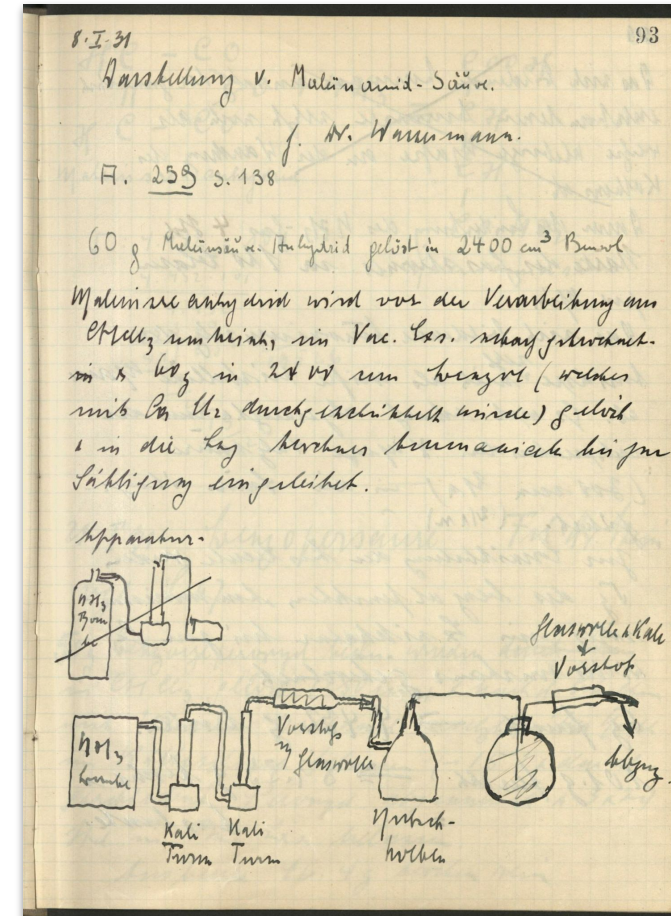 8·I·31
93
Darstellung v. Maleinamid-Säure.
f. Dr. Wassermann.
A. 259 S. 138
60 g Maleinsäure Anhydrid gelöst in 2400 cm³ Benzol
Maleinsre anhydrid wird vor der Verarbeitung aus
CHCl₃ umkrist, im Vac. Exs. scharf getrocknet.
60g in 2400 ccm Benzol (welches
mit CaCl₂ durchgeschüttelt wurde) gelöst
+ in die Lsg trockenes Ammoniak bis zur
Sättigung eingeleitet.
Apparatur.
NH₃
Bom
be
Glaswolle + Kali
Vorstoß
NH₃
Bombe
Vorstoß
m Glaswolle
Abzug.
Kali
Turm
Kali
Turm
Nutsch-
kolben